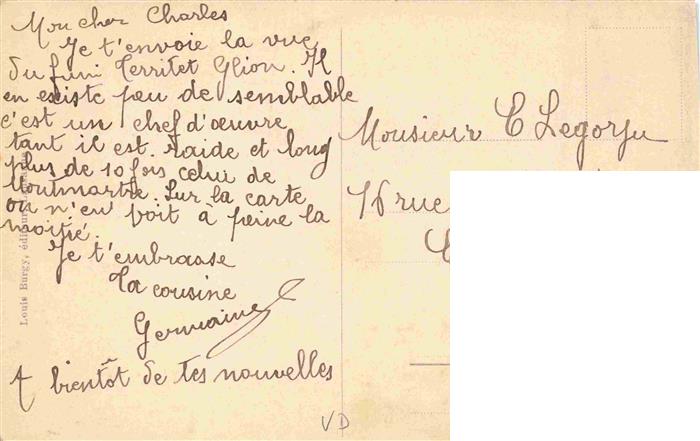 Mon cher Charles
Je t'envoie la vue
du funi Territet Glion. Il
en existe peu de semblable
c'est un chef d'œuvre
tant il est raide et long
plus de 10 fois celui de
Montmartre. Sur la carte
on n'en voit à peine la
moitié.
Je t'embrasse
Ta cousine
Germaine
A bientôt de tes nouvelles
Louis Burgy, éditeur
Monsieur C Legorju
16 rue
VD